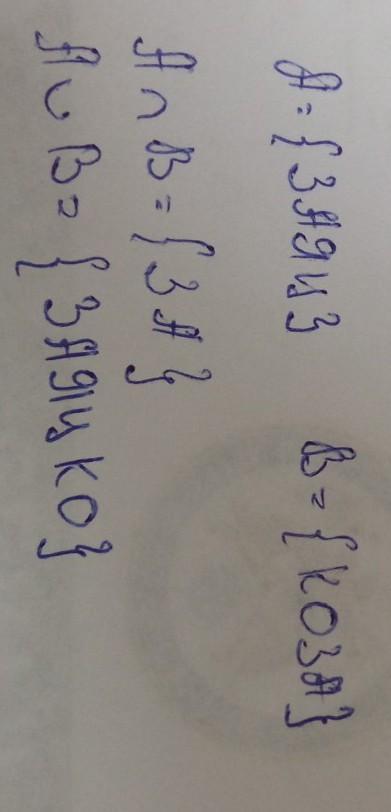 A = {ЗАЯЦ} B = {КОЗА}
A ∩ B = {ЗА}
A ∪ B = {ЗАЯЦКО}